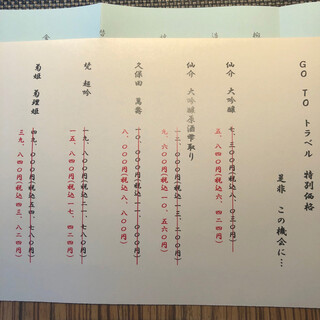 GO TO トラベル 特別価格
是非 この機会に…
仙介 大吟醸
七、三〇〇円(税込八、〇三〇円)
五、八四〇円(税込六、四二四円)
仙介 大吟醸原酒雫取り
一二、〇〇〇円(税込一三、二〇〇円)
九、六〇〇円(税込一〇、五六〇円)
久保田 萬壽
一〇、〇〇〇円(税込一一、〇〇〇円)
八、〇〇〇円(税込八、八〇〇円)
梵 超吟
一九、八〇〇円(税込二一、七八〇円)
一五、八四〇円(税込一七、四二四円)
菊姫 菊理姫
四九、八〇〇円(税込五四、七八〇円)
三九、八四〇円(税込四三、八二四円)